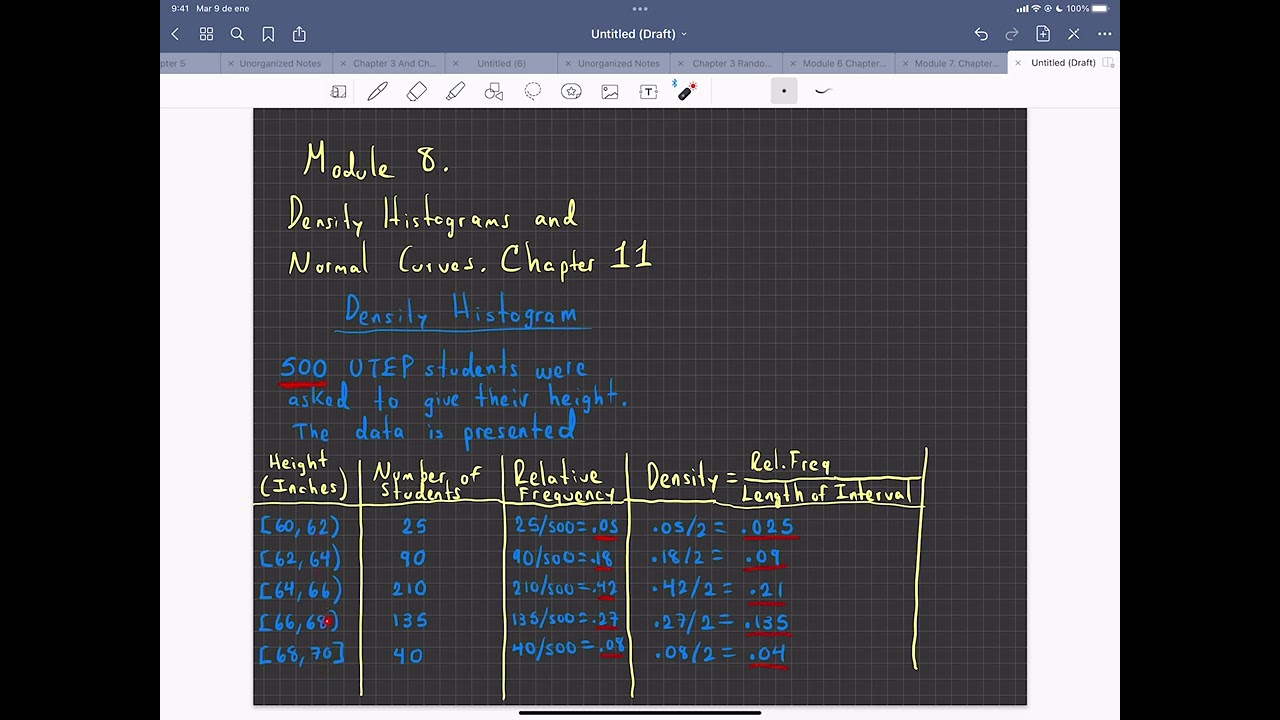 9:41 Mar 9 de ene
100%
Untitled (Draft)
pter 5
Unorganized Notes
Chapter 3 And Ch...
Untitled (6)
Unorganized Notes
Chapter 3 Rando...
Module 6 Chapter...
Module 7. Chapter...
Untitled (Draft)
Module 8.
Density Histograms and
Normal Curves. Chapter 11
Density Histogram
500 UTEP students were
asked to give their height.
The data is presented
Height (Inches) Number of Students Relative Frequency Density = Rel. Freq / Length of Interval
[60, 62) 25 25/500 = .05 .05/2 = .025
[62, 64) 90 90/500 = .18 .18/2 = .09
[64, 66) 210 210/500 = .42 .42/2 = .21
[66, 68) 135 135/500 = .27 .27/2 = .135
[68, 70] 40 40/500 = .08 .08/2 = .04